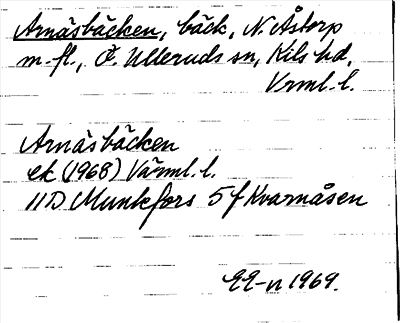 Arnäsbäcken, bäck, N. Åstorp
m.fl., Ö. Ulleruds sn, Kils hd,
Vrml. l.
Arnäsbäcken
ek (1968) Värml. l.
11D Munkfors 5f Kvarnåsen
1969.